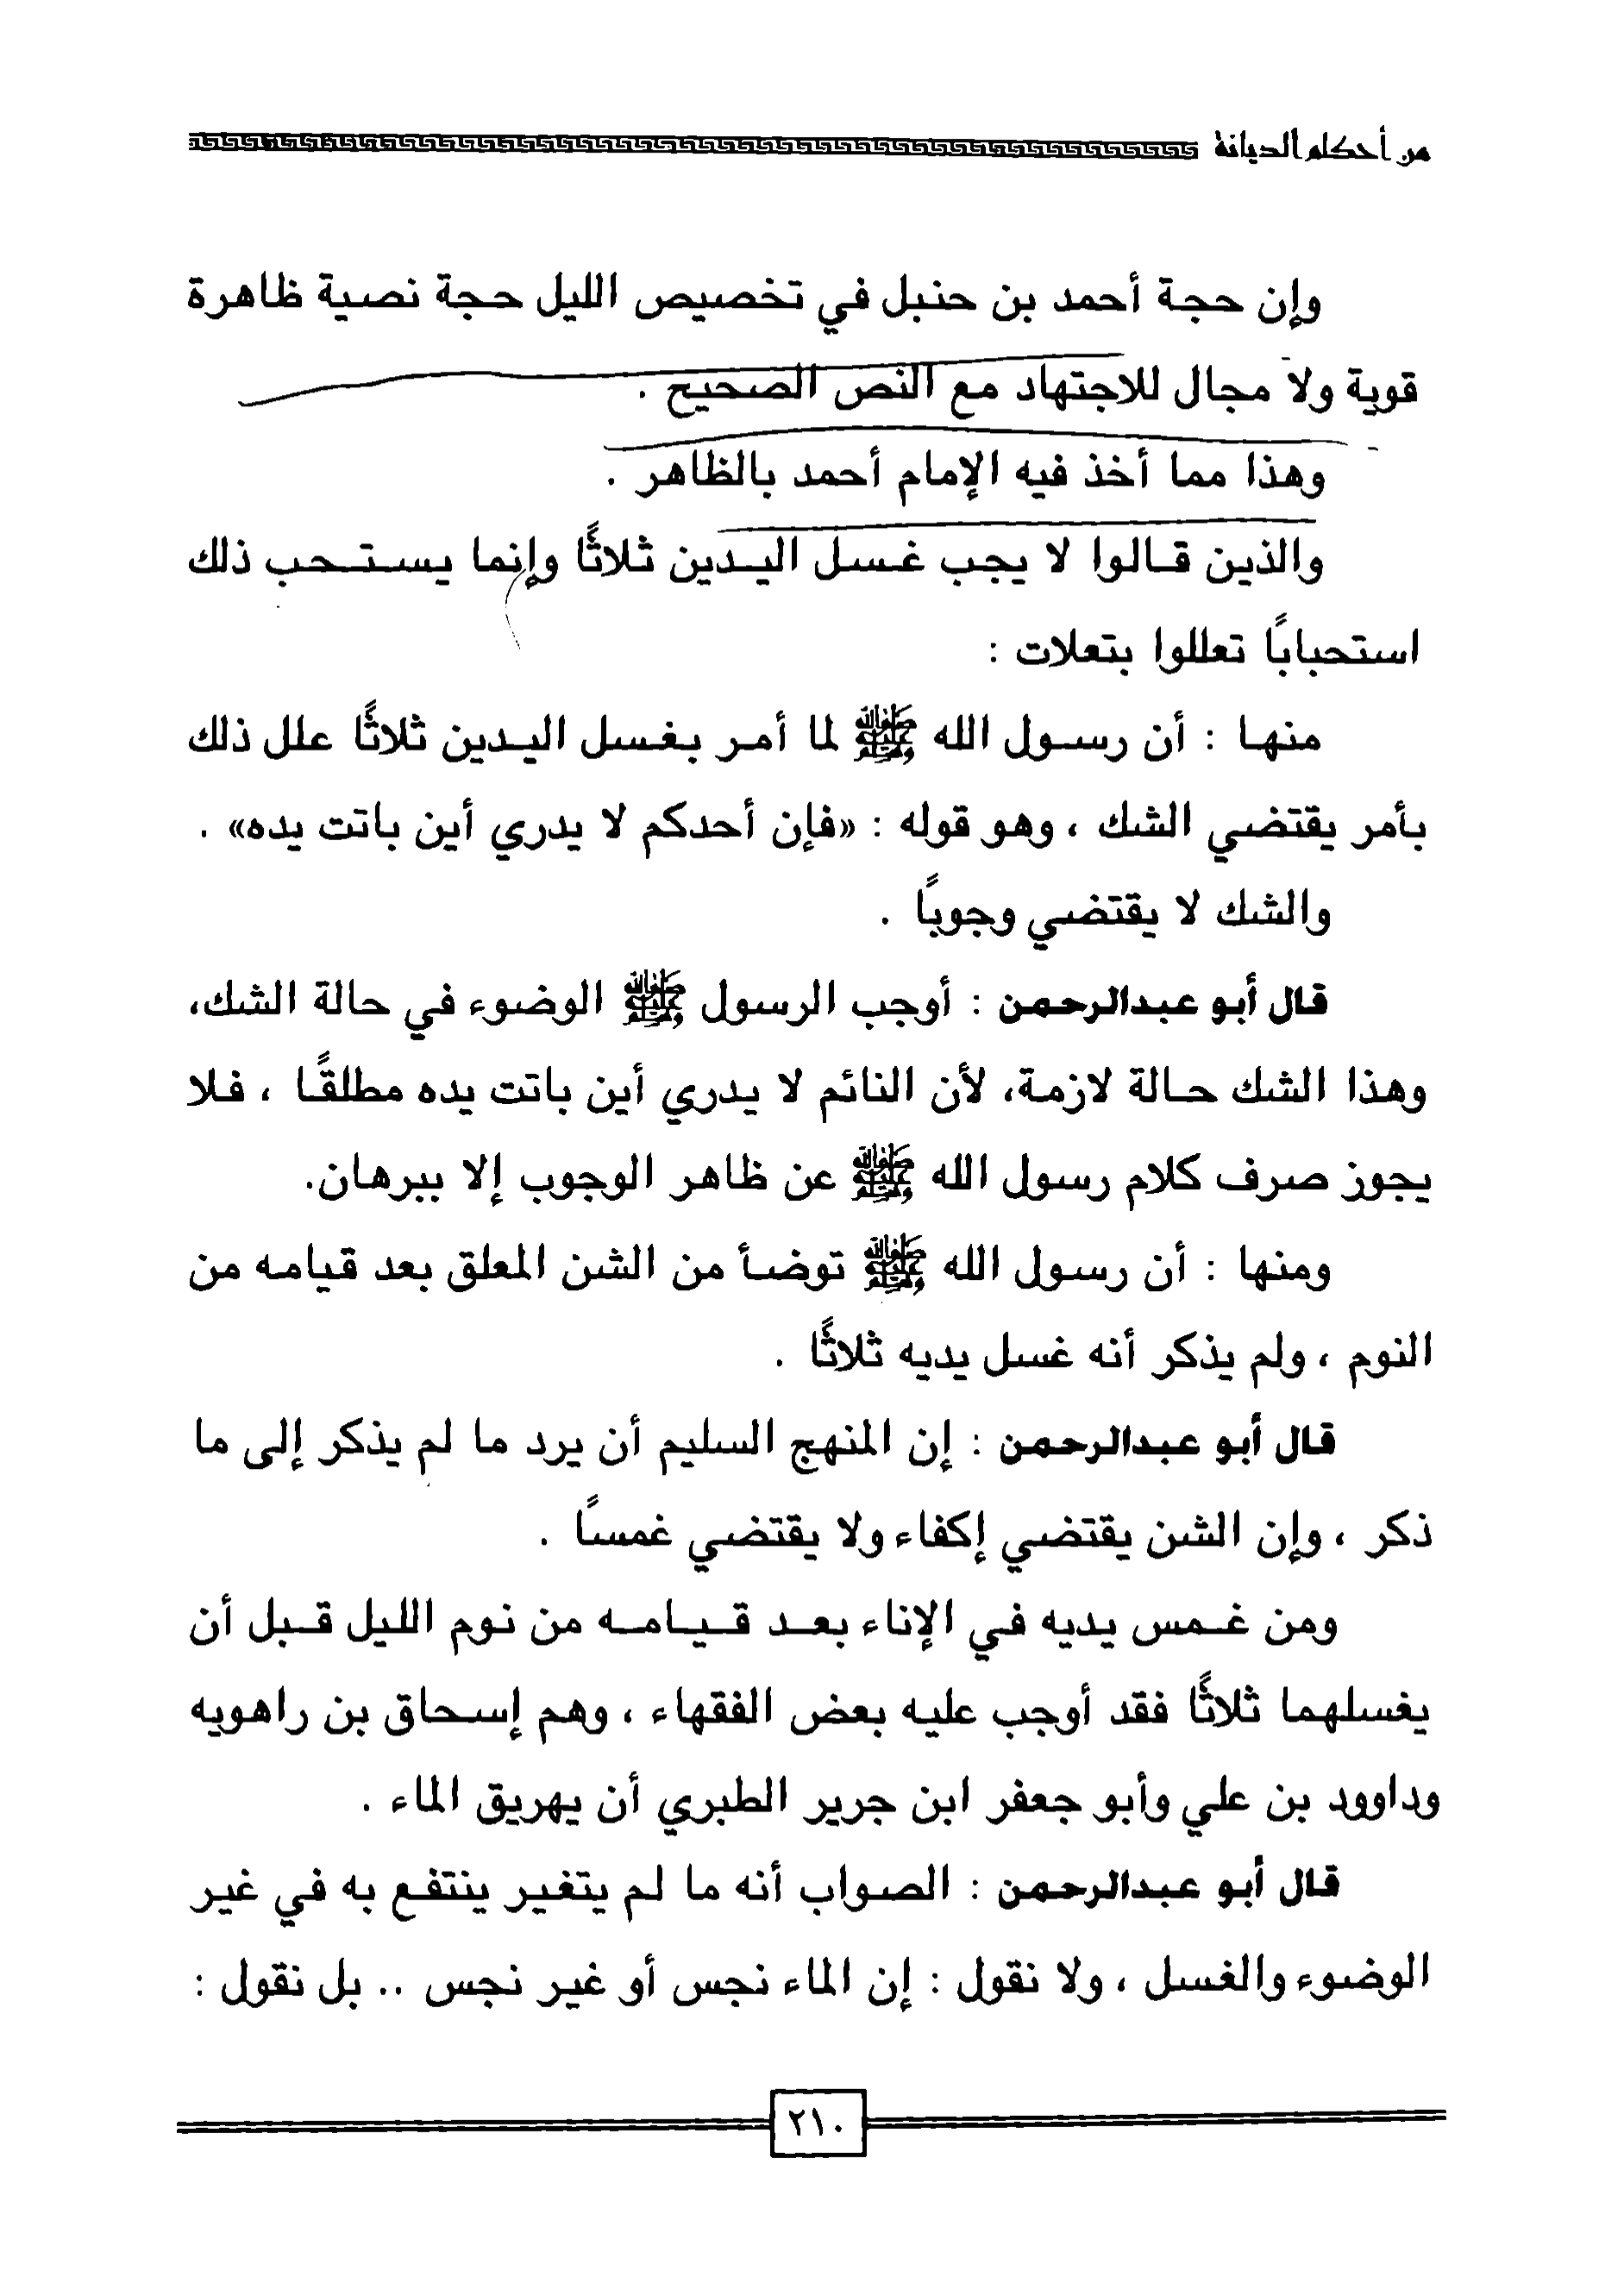 من أحكام الديانة
وإن حجة أحمد بن حنبل في تخصيص الليل حجة نصية ظاهرة
قوية ولا مجال للاجتهاد مع النص الصحيح .
وهذا مما أخذ فيه الإمام أحمد بالظاهر .
والذين قالوا لا يجب غسل اليدين ثلاثًا وإنما يستحب ذلك
استحبابًا تعللوا بتعلات :
منها : أن رسول الله ﷺ لما أمر بغسل اليدين ثلاثًا علل ذلك
بأمر يقتضي الشك ، وهو قوله : «فإن أحدكم لا يدري أين باتت يده» .
والشك لا يقتضي وجوبًا .
قال أبو عبدالرحمن : أوجب الرسول ﷺ الوضوء في حالة الشك،
وهذا الشك حالة لازمة، لأن النائم لا يدري أين باتت يده مطلقًا ، فلا
يجوز صرف كلام رسول الله ﷺ عن ظاهر الوجوب إلا ببرهان.
ومنها : أن رسول الله ﷺ توضأ من الشن المعلق بعد قيامه من
النوم ، ولم يذكر أنه غسل يديه ثلاثًا .
قال أبو عبدالرحمن : إن المنهج السليم أن يرد ما لم يذكر إلى ما
ذكر ، وإن الشن يقتضي إكفاء ولا يقتضي غمسًا .
ومن غمس يديه في الإناء بعد قيامه من نوم الليل قبل أن
يغسلهما ثلاثًا فقد أوجب عليه بعض الفقهاء ، وهم إسحاق بن راهويه
وداوود بن علي وأبو جعفر ابن جرير الطبري أن يهريق الماء .
قال أبو عبدالرحمن : الصواب أنه ما لم يتغير ينتفع به في غير
الوضوء والغسل ، ولا نقول : إن الماء نجس أو غير نجس .. بل نقول :
٢١٠